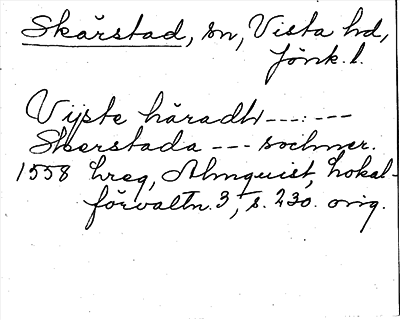 Skärstad, sn, Vista hd,
Jönk. l.
Vijste häradh ---:---
Skerstada --- sochner.
1558 Lreg, Almquist, Lokal-
förvaltn. 3, s. 230. orig.